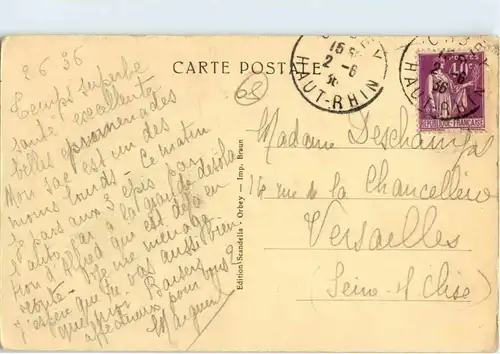 2 6 36
Temps superbe
santé excellente
belles promenades
Mon sac est un des
moins lourds. Ce matin
je pars aux 3 épis par
l'auto car à la grande désola
tion d'Alfred qui est déjà en
route. Je me ménage
j'espère que tu vas aussi bien
que moi. Baisers
affectueux pour vous 2
CARTE POSTALE
68
15
2-6
36
HAUT-RHIN
POSTES
40
REPUBLIQUE FRANÇAISE
HAUT-RHIN
Edition Scandella - Orbey - Imp. Braun
Madame Deschamps
14 rue de la Chancellerie
Versailles
(Seine et Oise)